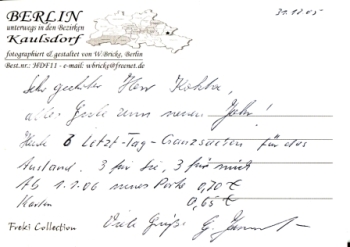 31.12.05
BERLIN
unterwegs in den Bezirken
Kaulsdorf
fotographiert & gestaltet von W.Bricke, Berlin
Best.nr.: HDF11 - e-mail: wbricke@freenet.de
Sehr geehrter Herr
alles Gute zum neuen Jahr!
Heute 6 Letzt-Tag-Ganzsachen für das
Ausland. 3 für Sie, 3 für mich
Ab 1.1.06 neues Porto 0,70 €
Karten 0,65 €
Freki Collection Viele Grüße G.